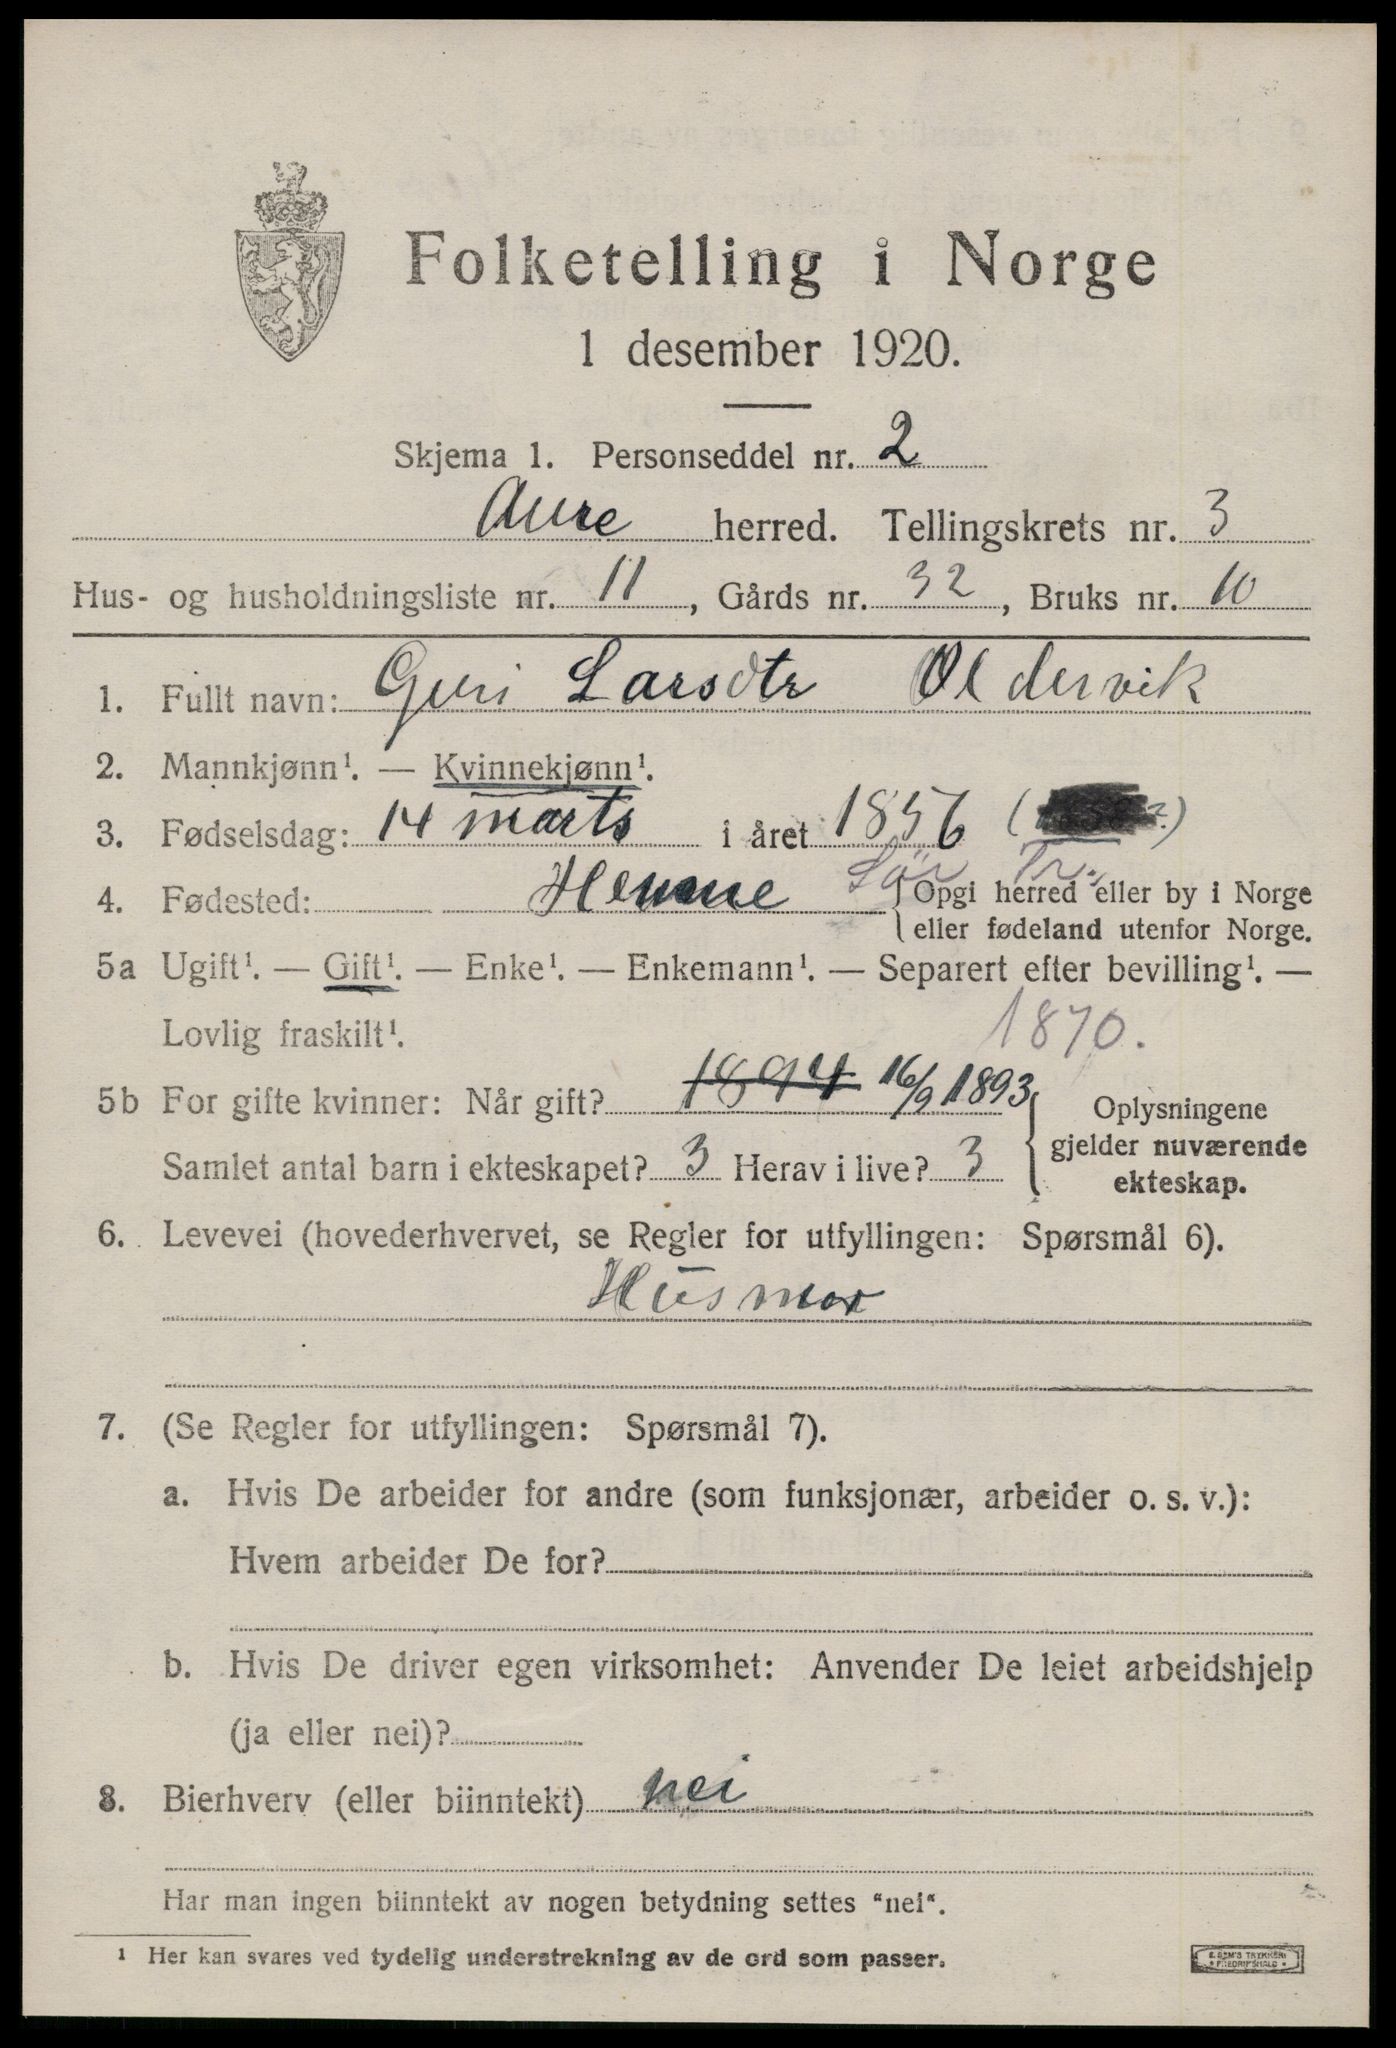 Folketelling i Norge
1 desember 1920.
Skjema 1. Personseddel nr. 2
Aure herred. Tellingskrets nr. 3
Hus- og husholdningsliste nr. 11, Gårds nr. 32, Bruks nr. 10
1. Fullt navn: Guri Larsdtr Oldervik
2. Mannkjønn¹. — Kvinnekjønn¹.
3. Fødselsdag: 14 marts i året 1856 ( ?)
Sör Tr.
4. Fødested: Hemne Opgi herred eller by i Norge
eller fødeland utenfor Norge.
5a Ugift¹. — Gift¹. — Enke¹. — Enkemann¹. — Separert efter bevilling¹. —
Lovlig fraskilt¹. 1870.
5b For gifte kvinner: Når gift? 1894 16/9 1893 Oplysningene
gjelder nuværende
ekteskap.
Samlet antal barn i ekteskapet? 3 Herav i live? 3
6. Levevei (hovederhvervet, se Regler for utfyllingen: Spørsmål 6).
Husmor
7. (Se Regler for utfyllingen: Spørsmål 7).
a. Hvis De arbeider for andre (som funksjonær, arbeider o. s. v.):
Hvem arbeider De for?
b. Hvis De driver egen virksomhet: Anvender De leiet arbeidshjelp
(ja eller nei)?
8. Bierhverv (eller biinntekt) nei
Har man ingen biinntekt av nogen betydning settes "nei".
¹ Her kan svares ved tydelig understrekning av de ord som passer.
E. SEM'S TRYKKERI
• FREDRIKSHALD •